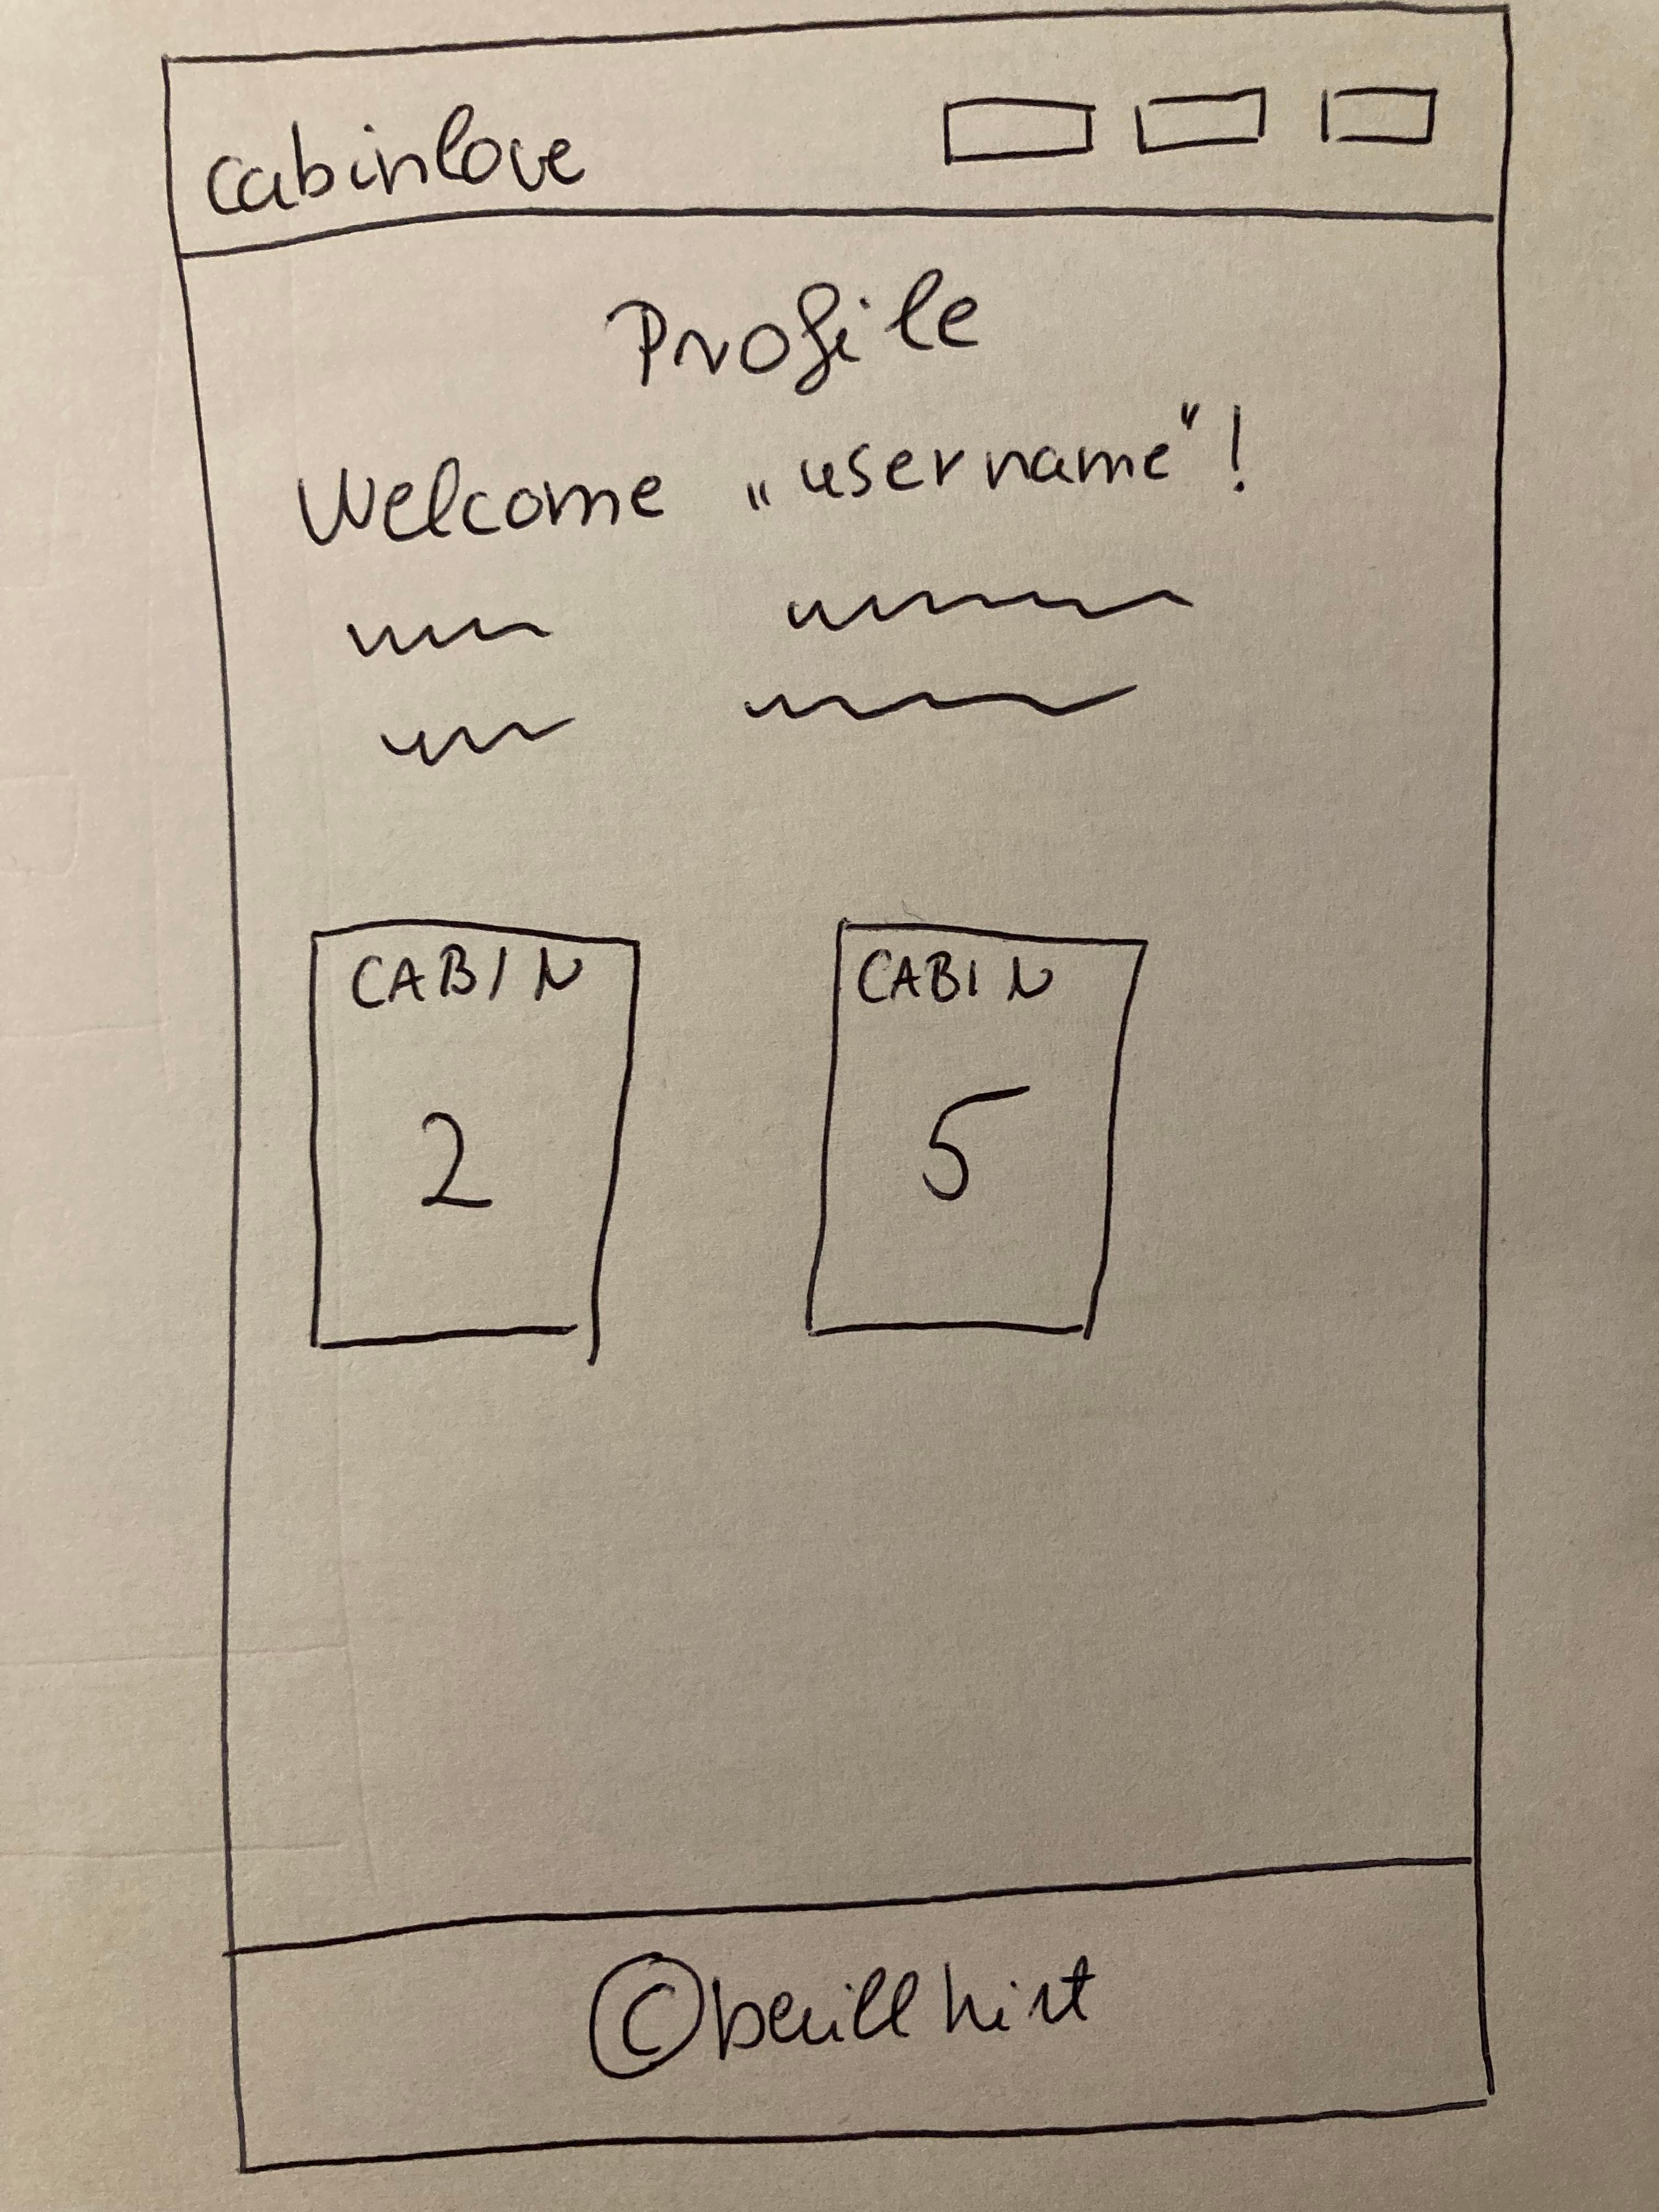 cabinlove
Profile
Welcome „username“!
CABIN
2
CABIN
5
©